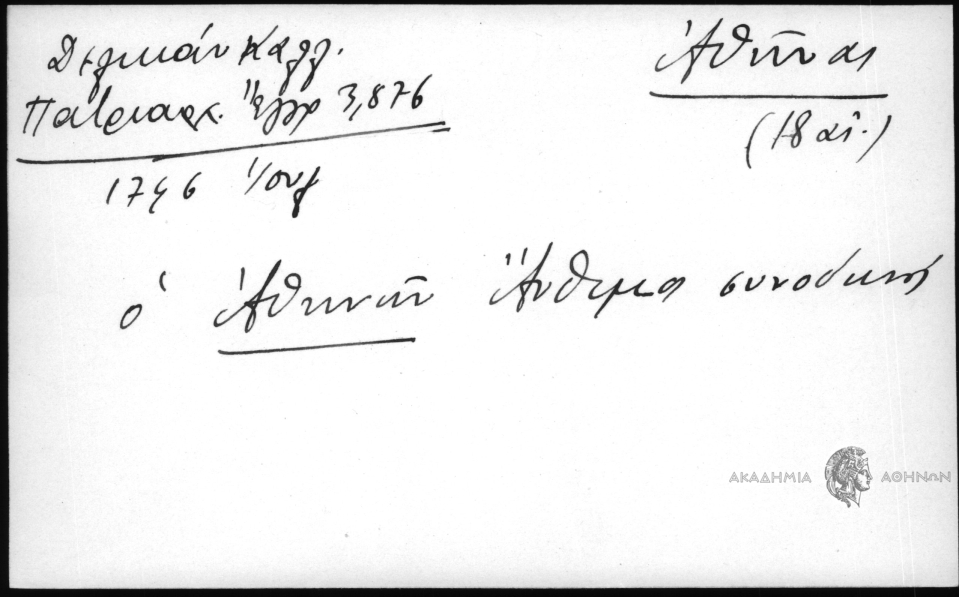 Δελικάν Καλλ.
Πατριαρχ. Ἔγγρ 3,876
1746 Ἰουλ
Ἀθῆναι
(18 αἰ.)
ὁ Ἀθηνῶν Ἄνθιμος συνοδικός
ΑΚΑΔΗΜΙΑ ΑΘΗΝΩΝ